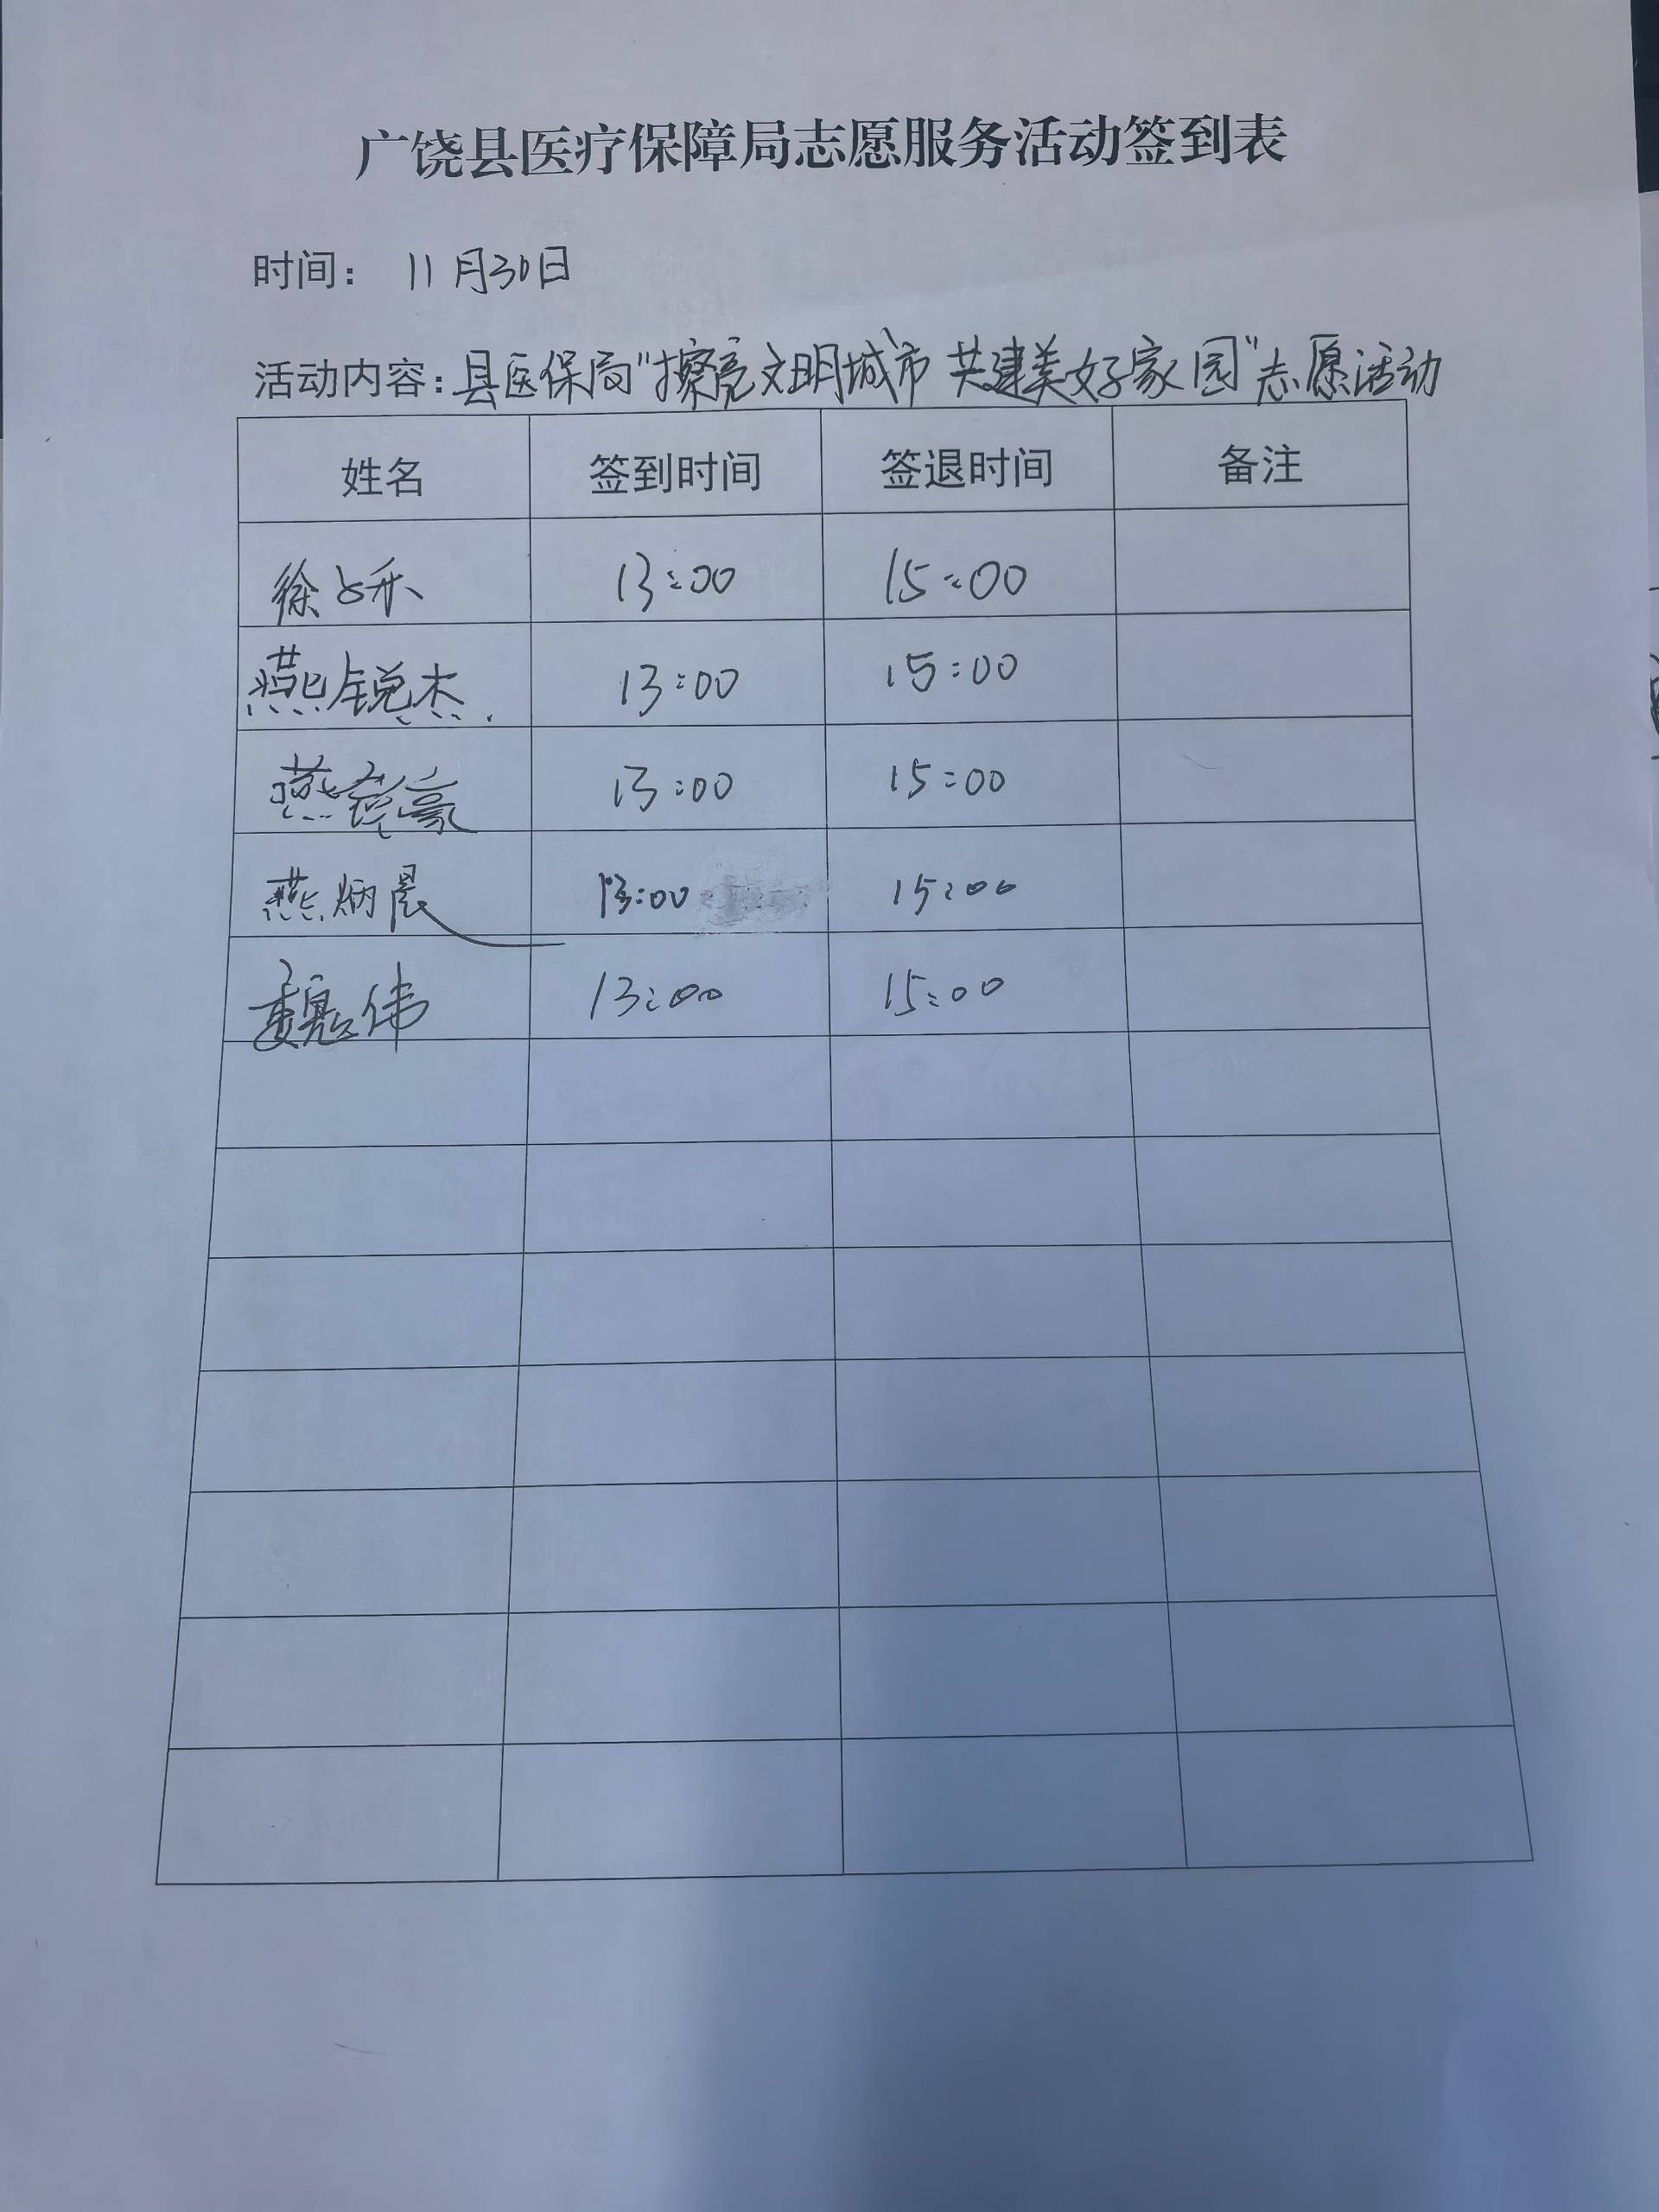 广饶县医疗保障局志愿服务活动签到表
时间： 11月30日
活动内容：县医保局“擦亮文明城市 共建美好家园”志愿活动
姓名 签到时间 签退时间 备注
徐 13:00 15:00
燕锐杰 13:00 15:00
燕豪 13:00 15:00
燕炳晨 13:00 15:00
魏伟 13:00 15:00